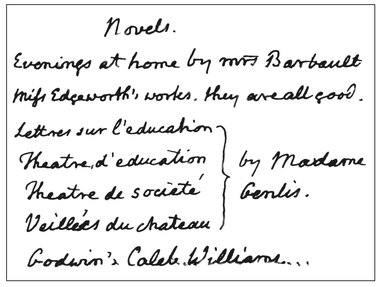 Novels.
Evenings at home by mrs Barbault
Miss Edgeworth's works. they are all good.
Lettres sur l'education
Theatre d'education by Madame
Theatre de société Genlis.
Veillées du chateau
Godwin's Caleb Williams...